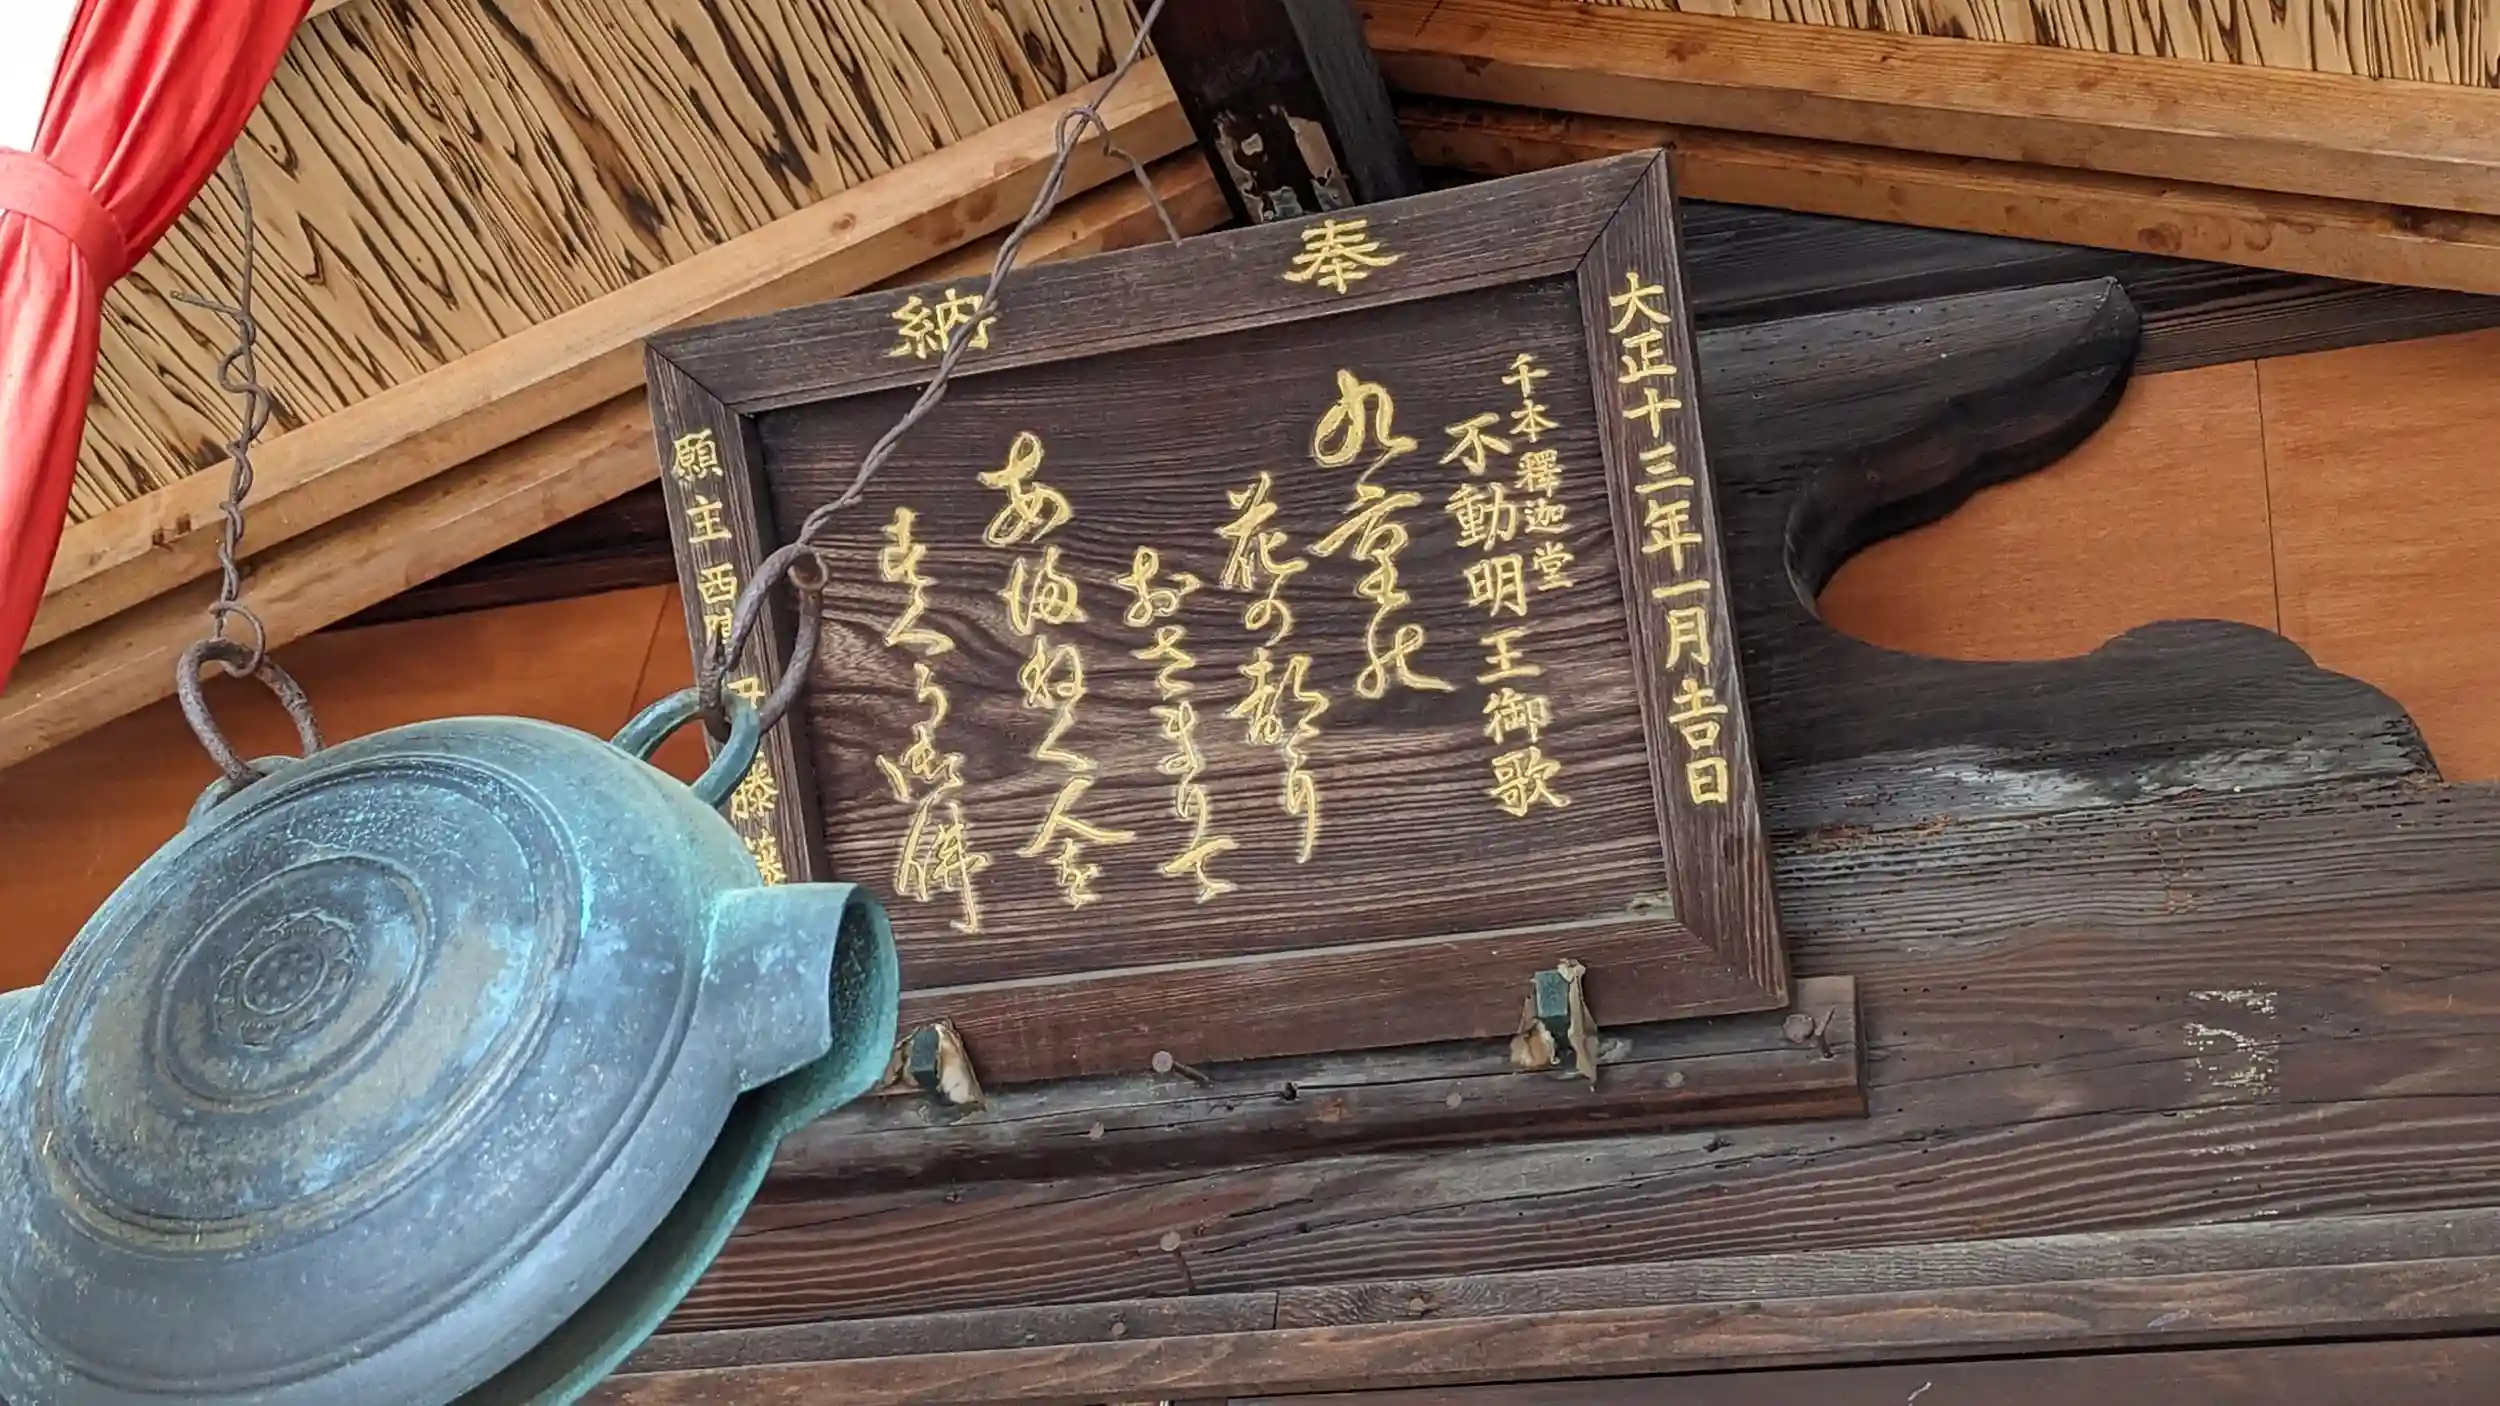 奉納
大正十三年一月吉日
千本釋迦堂
不動明王御歌
九重の
花の都尓
おさまりて
あまねく人を
すくう御佛
願主西陣
藤